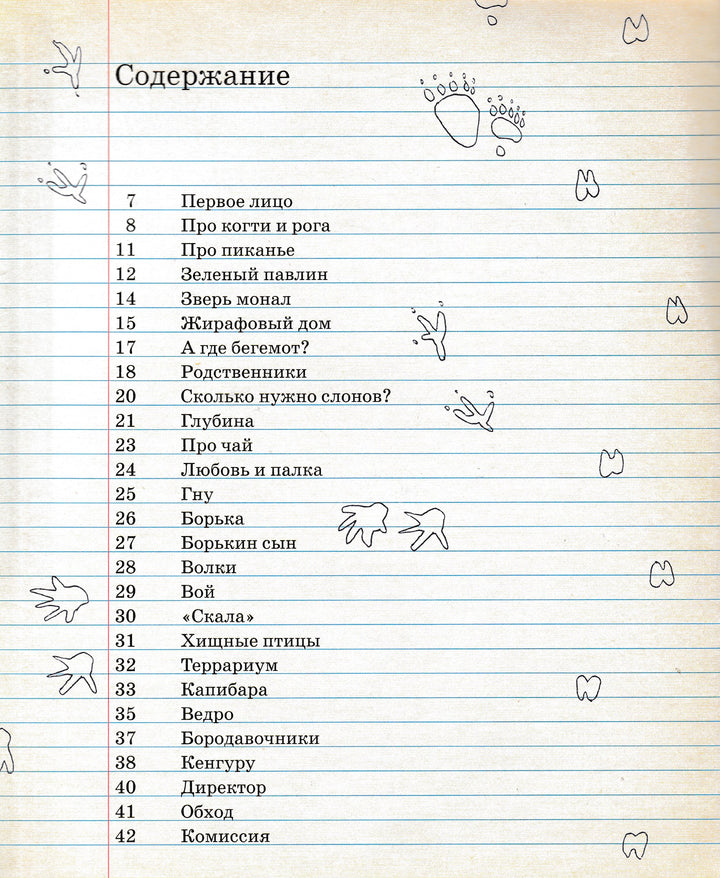 Содержание
7 Первое лицо
8 Про когти и рога
11 Про пиканье
12 Зеленый павлин
14 Зверь монал
15 Жирафовый дом
17 А где бегемот?
18 Родственники
20 Сколько нужно слонов?
21 Глубина
23 Про чай
24 Любовь и палка
25 Гну
26 Борька
27 Борькин сын
28 Волки
29 Вой
30 «Скала»
31 Хищные птицы
32 Террариум
33 Капибара
35 Ведро
37 Бородавочники
38 Кенгуру
40 Директор
41 Обход
42 Комиссия